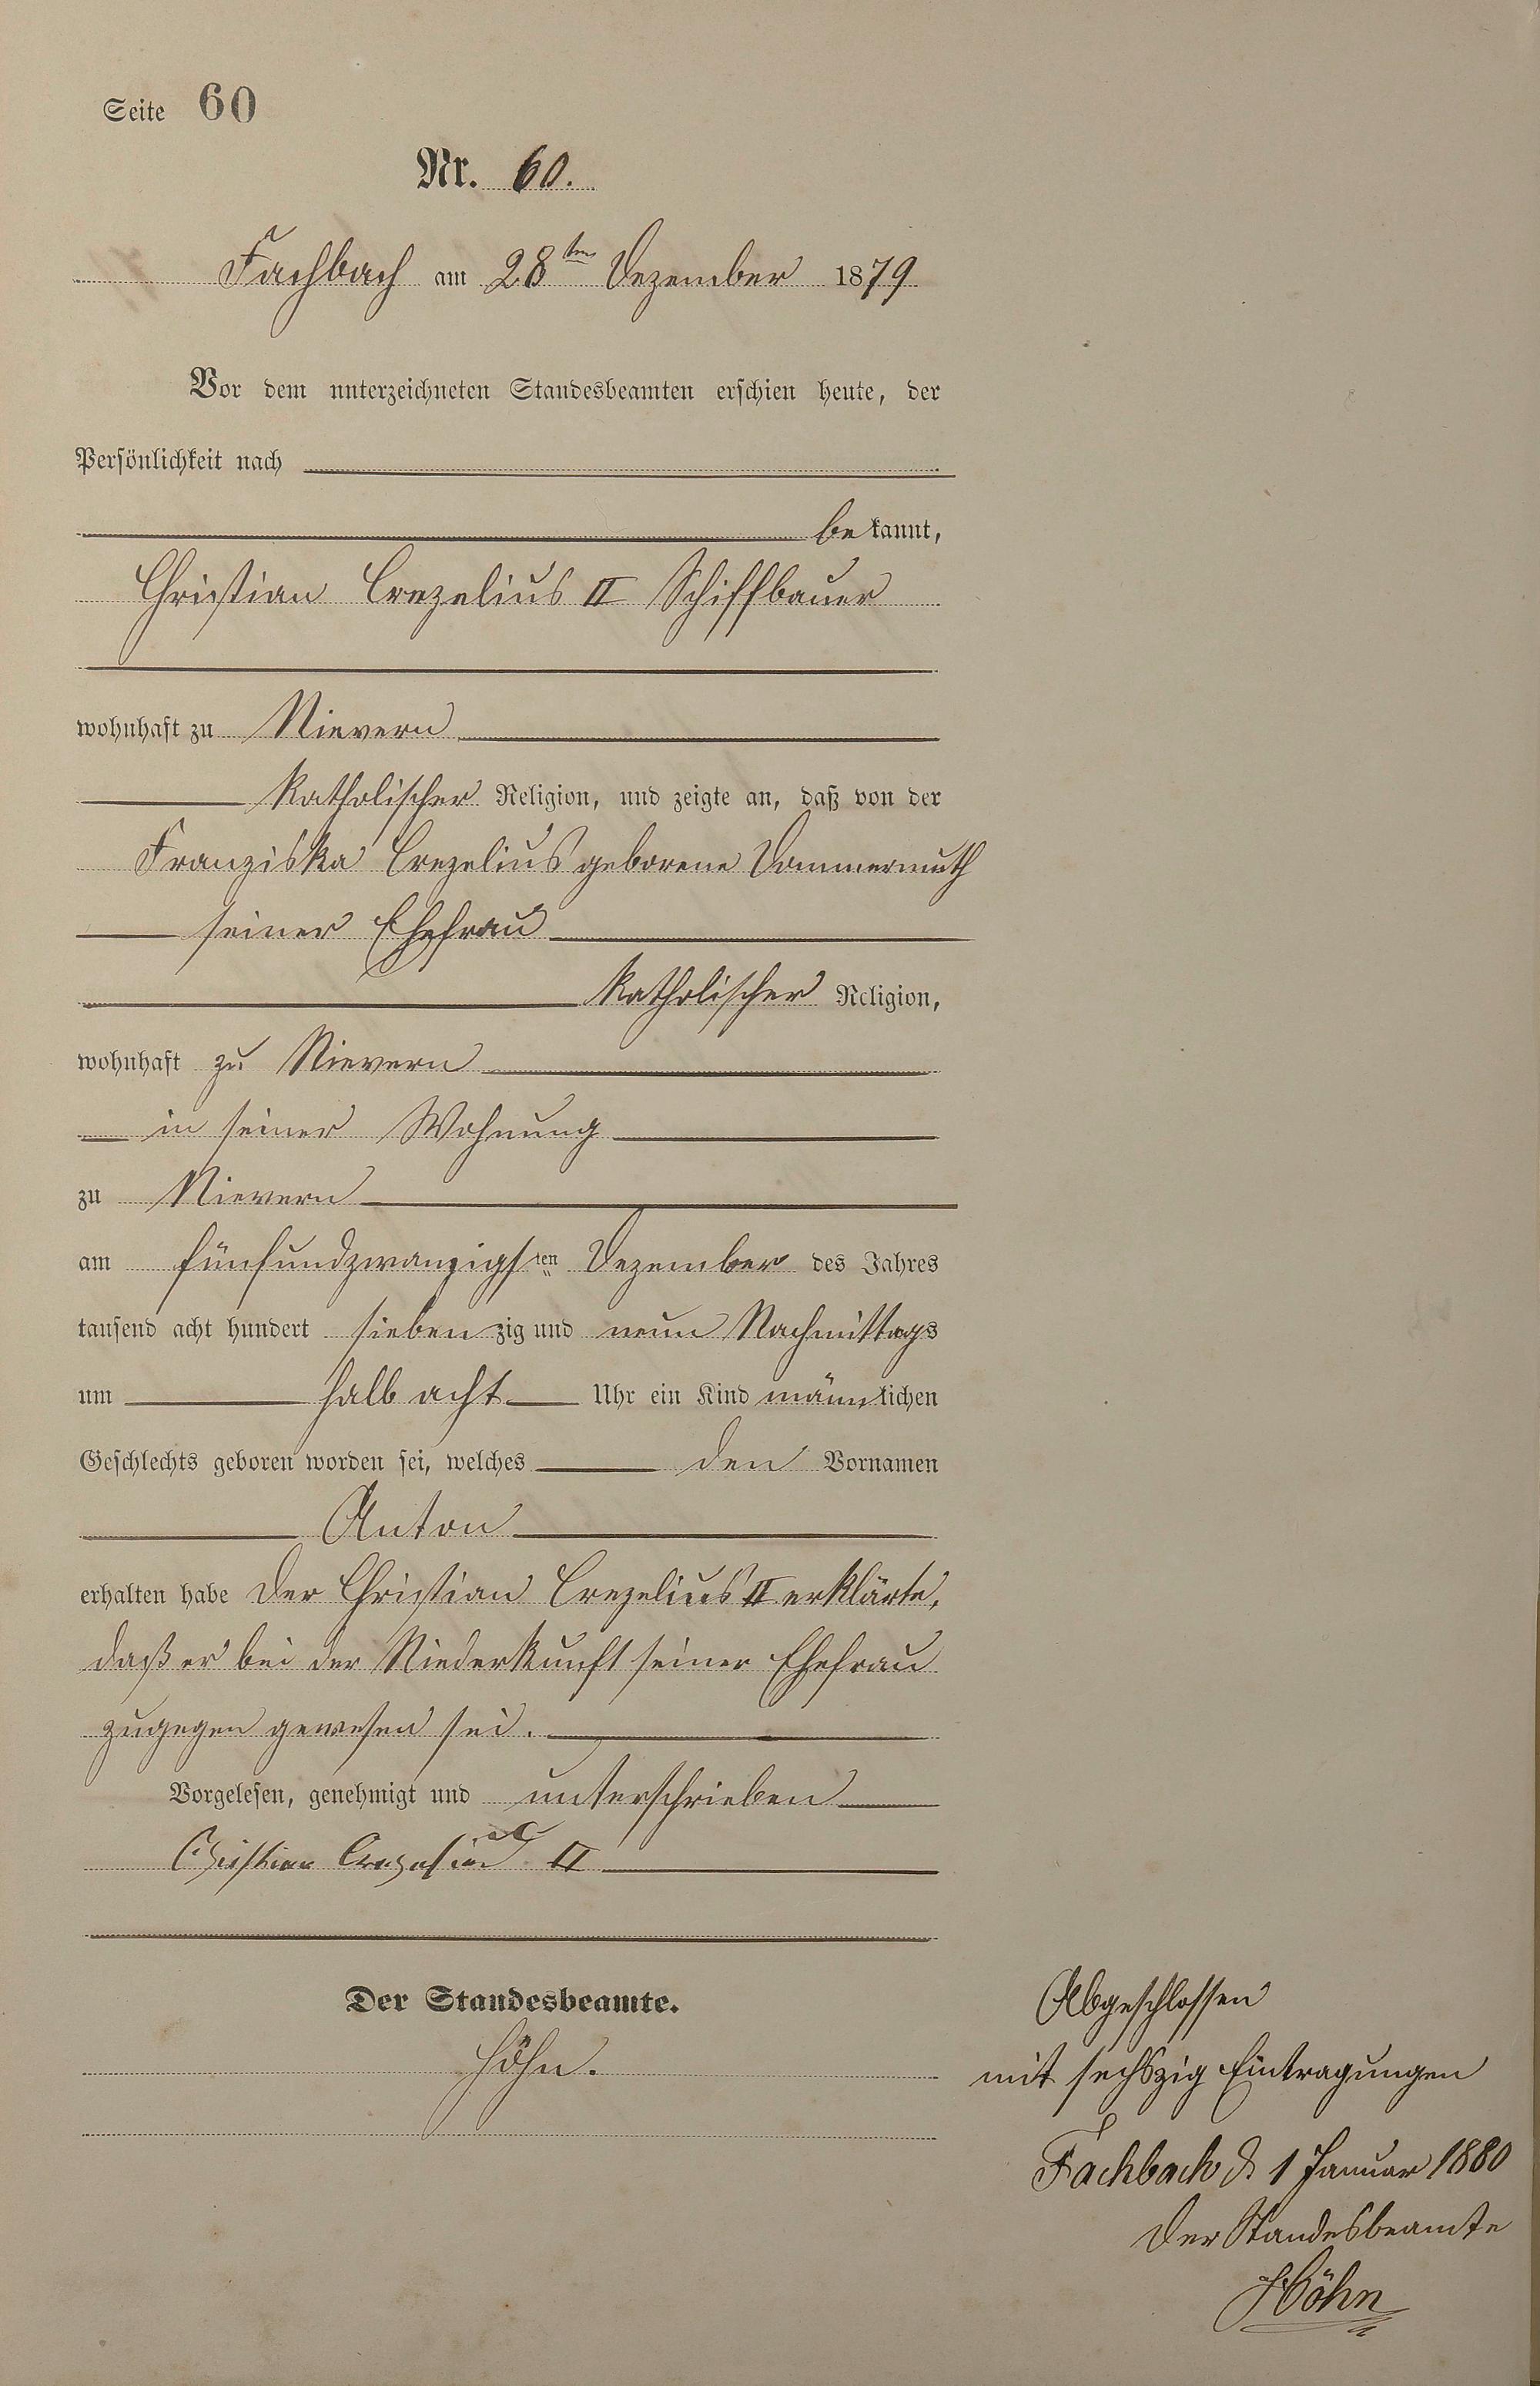 Seite 60
Nr. 60.
Fachbach am 28ten Dezember 1879
Vor dem unterzeichneten Standesbeamten erschien heute, der
Persönlichkeit nach
bekannt,
Christian Crezelius II Schiffbauer
wohnhaft zu Nievern
Katholischer Religion, und zeigte an, daß von der
Franziska Crezelius geborene Dommermuth
seiner Ehefrau
Katholischer Religion,
wohnhaft zu Nievern
in seiner Wohnung
zu Nievern
am fünfundzwanzigsten Dezember des Jahres
tausend acht hundert siebenzig und neun Nachmittags
um halb acht Uhr ein Kind männlichen
Geschlechts geboren worden sei, welches den Vornamen
Anton
erhalten habe Der Christian Crezelius II erklärte,
daß er bei der Niederkunft seiner Ehefrau
zugegen gewesen sei.
Vorgelesen, genehmigt und unterschrieben
Christian Crezelius II
Der Standesbeamte.
Höhn.
Abgeschlossen
mit sechszig Eintragungen
Fachbach d. 1 Januar 1880
Der Standesbeamte
Höhn